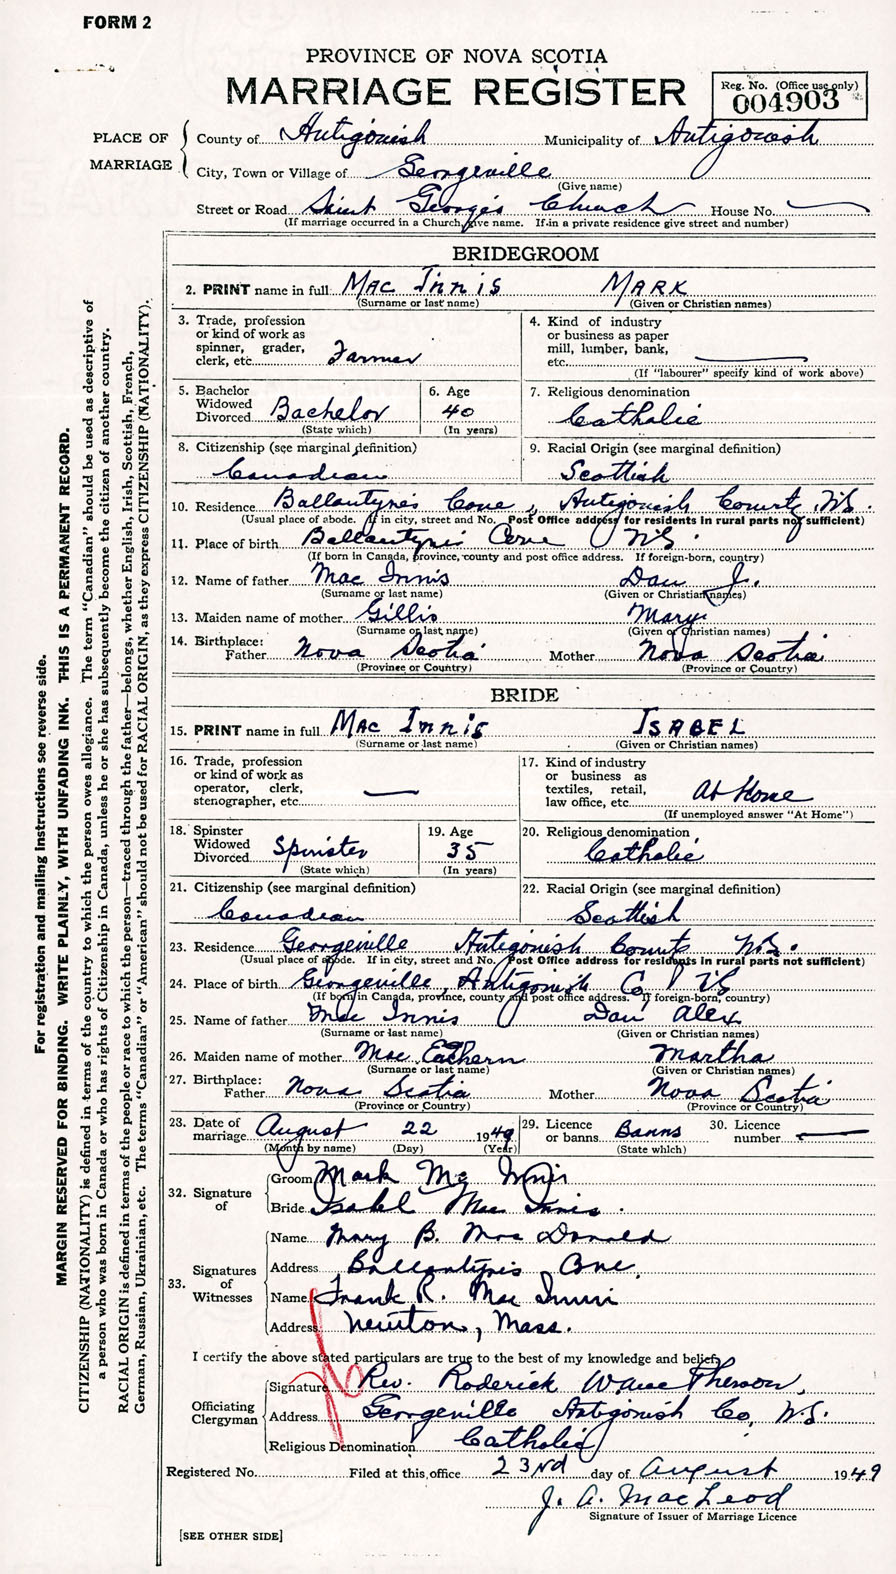 FORM 2
PROVINCE OF NOVA SCOTIA
MARRIAGE REGISTER
Reg. No. (Office use only)
004903
PLACE OF MARRIAGE
County of Antigonish Municipality of Antigonish
City, Town or Village of Georgeville
(Give name)
Street or Road Saint George's Church House No.
(If marriage occurred in a Church, give name. If in a private residence give street and number)
BRIDEGROOM
2. PRINT name in full Mac Innis MARK
(Surname or last name) (Given or Christian names)
3. Trade, profession or kind of work as spinner, grader, clerk, etc. Farmer
4. Kind of industry or business as paper mill, lumber, bank, etc.
(If "labourer" specify kind of work above)
5. Bachelor Widowed Divorced Bachelor
(State which)
6. Age 40
(In years)
7. Religious denomination Catholic
8. Citizenship (see marginal definition) Canadian
9. Racial Origin (see marginal definition) Scottish
10. Residence Ballantyne's Cove, Antigonish County, N.S.
(Usual place of abode. If in city, street and No. Post Office address for residents in rural parts not sufficient)
11. Place of birth Ballantyne's Cove N.S.
(If born in Canada, province, county and post office address. If foreign-born, country)
12. Name of father Mac Innis Dan J.
(Surname or last name) (Given or Christian names)
13. Maiden name of mother Gillis Mary
(Surname or last name) (Given or Christian names)
14. Birthplace: Father Nova Scotia Mother Nova Scotia
(Province or Country) (Province or Country)
BRIDE
15. PRINT name in full Mac Innis ISABEL
(Surname or last name) (Given or Christian names)
16. Trade, profession or kind of work as operator, clerk, stenographer, etc. —
17. Kind of industry or business as textiles, retail, law office, etc. At Home
(If unemployed answer "At Home")
18. Spinster Widowed Divorced Spinster
(State which)
19. Age 35
(In years)
20. Religious denomination Catholic
21. Citizenship (see marginal definition) Canadian
22. Racial Origin (see marginal definition) Scottish
23. Residence Georgeville Antigonish County N.S.
(Usual place of abode. If in city, street and No. Post Office address for residents in rural parts not sufficient)
24. Place of birth Georgeville, Antigonish Co. N.S
(If born in Canada, province, county and post office address. If foreign-born, country)
25. Name of father Mac Innis Dan Alex
(Surname or last name) (Given or Christian names)
26. Maiden name of mother Mac Eachern Martha
(Surname or last name) (Given or Christian names)
27. Birthplace: Father Nova Scotia Mother Nova Scotia
(Province or Country) (Province or Country)
28. Date of marriage August 22 1949
(Month by name) (Day) (Year)
29. Licence or banns Banns
(State which)
30. Licence number —
32. Signature of
Groom Mark Mc Innis
Bride Isabel Mac Innis.
33. Signatures of Witnesses
Name Mary B. Mac Donald
Address Ballantyne's Cove,
Name Frank R. Mac Innis
Address Newton, Mass.
I certify the above stated particulars are true to the best of my knowledge and belief.
Officiating Clergyman
Signature Rev. Roderick
Address Georgeville Antigonish Co, N.S.
Religious Denomination Catholic
Registered No. Filed at this office 23rd day of August 1949
J. A. MacLeod
Signature of Issuer of Marriage Licence
[SEE OTHER SIDE]
For registration and mailing instructions see reverse side.
MARGIN RESERVED FOR BINDING. WRITE PLAINLY, WITH UNFADING INK. THIS IS A PERMANENT RECORD.
CITIZENSHIP (NATIONALITY) is defined in terms of the country to which the person owes allegiance. The term "Canadian" should be used as descriptive of
a person who was born in Canada or who has rights of Citizenship in Canada, unless he or she has subsequently become the citizen of another country.
RACIAL ORIGIN is defined in terms of the people or race to which the person—traced through the father—belongs, whether English, Irish, Scottish, French,
German, Russian, Ukrainian, etc. The terms "Canadian" or "American" should not be used for RACIAL ORIGIN, as they express CITIZENSHIP (NATIONALITY).